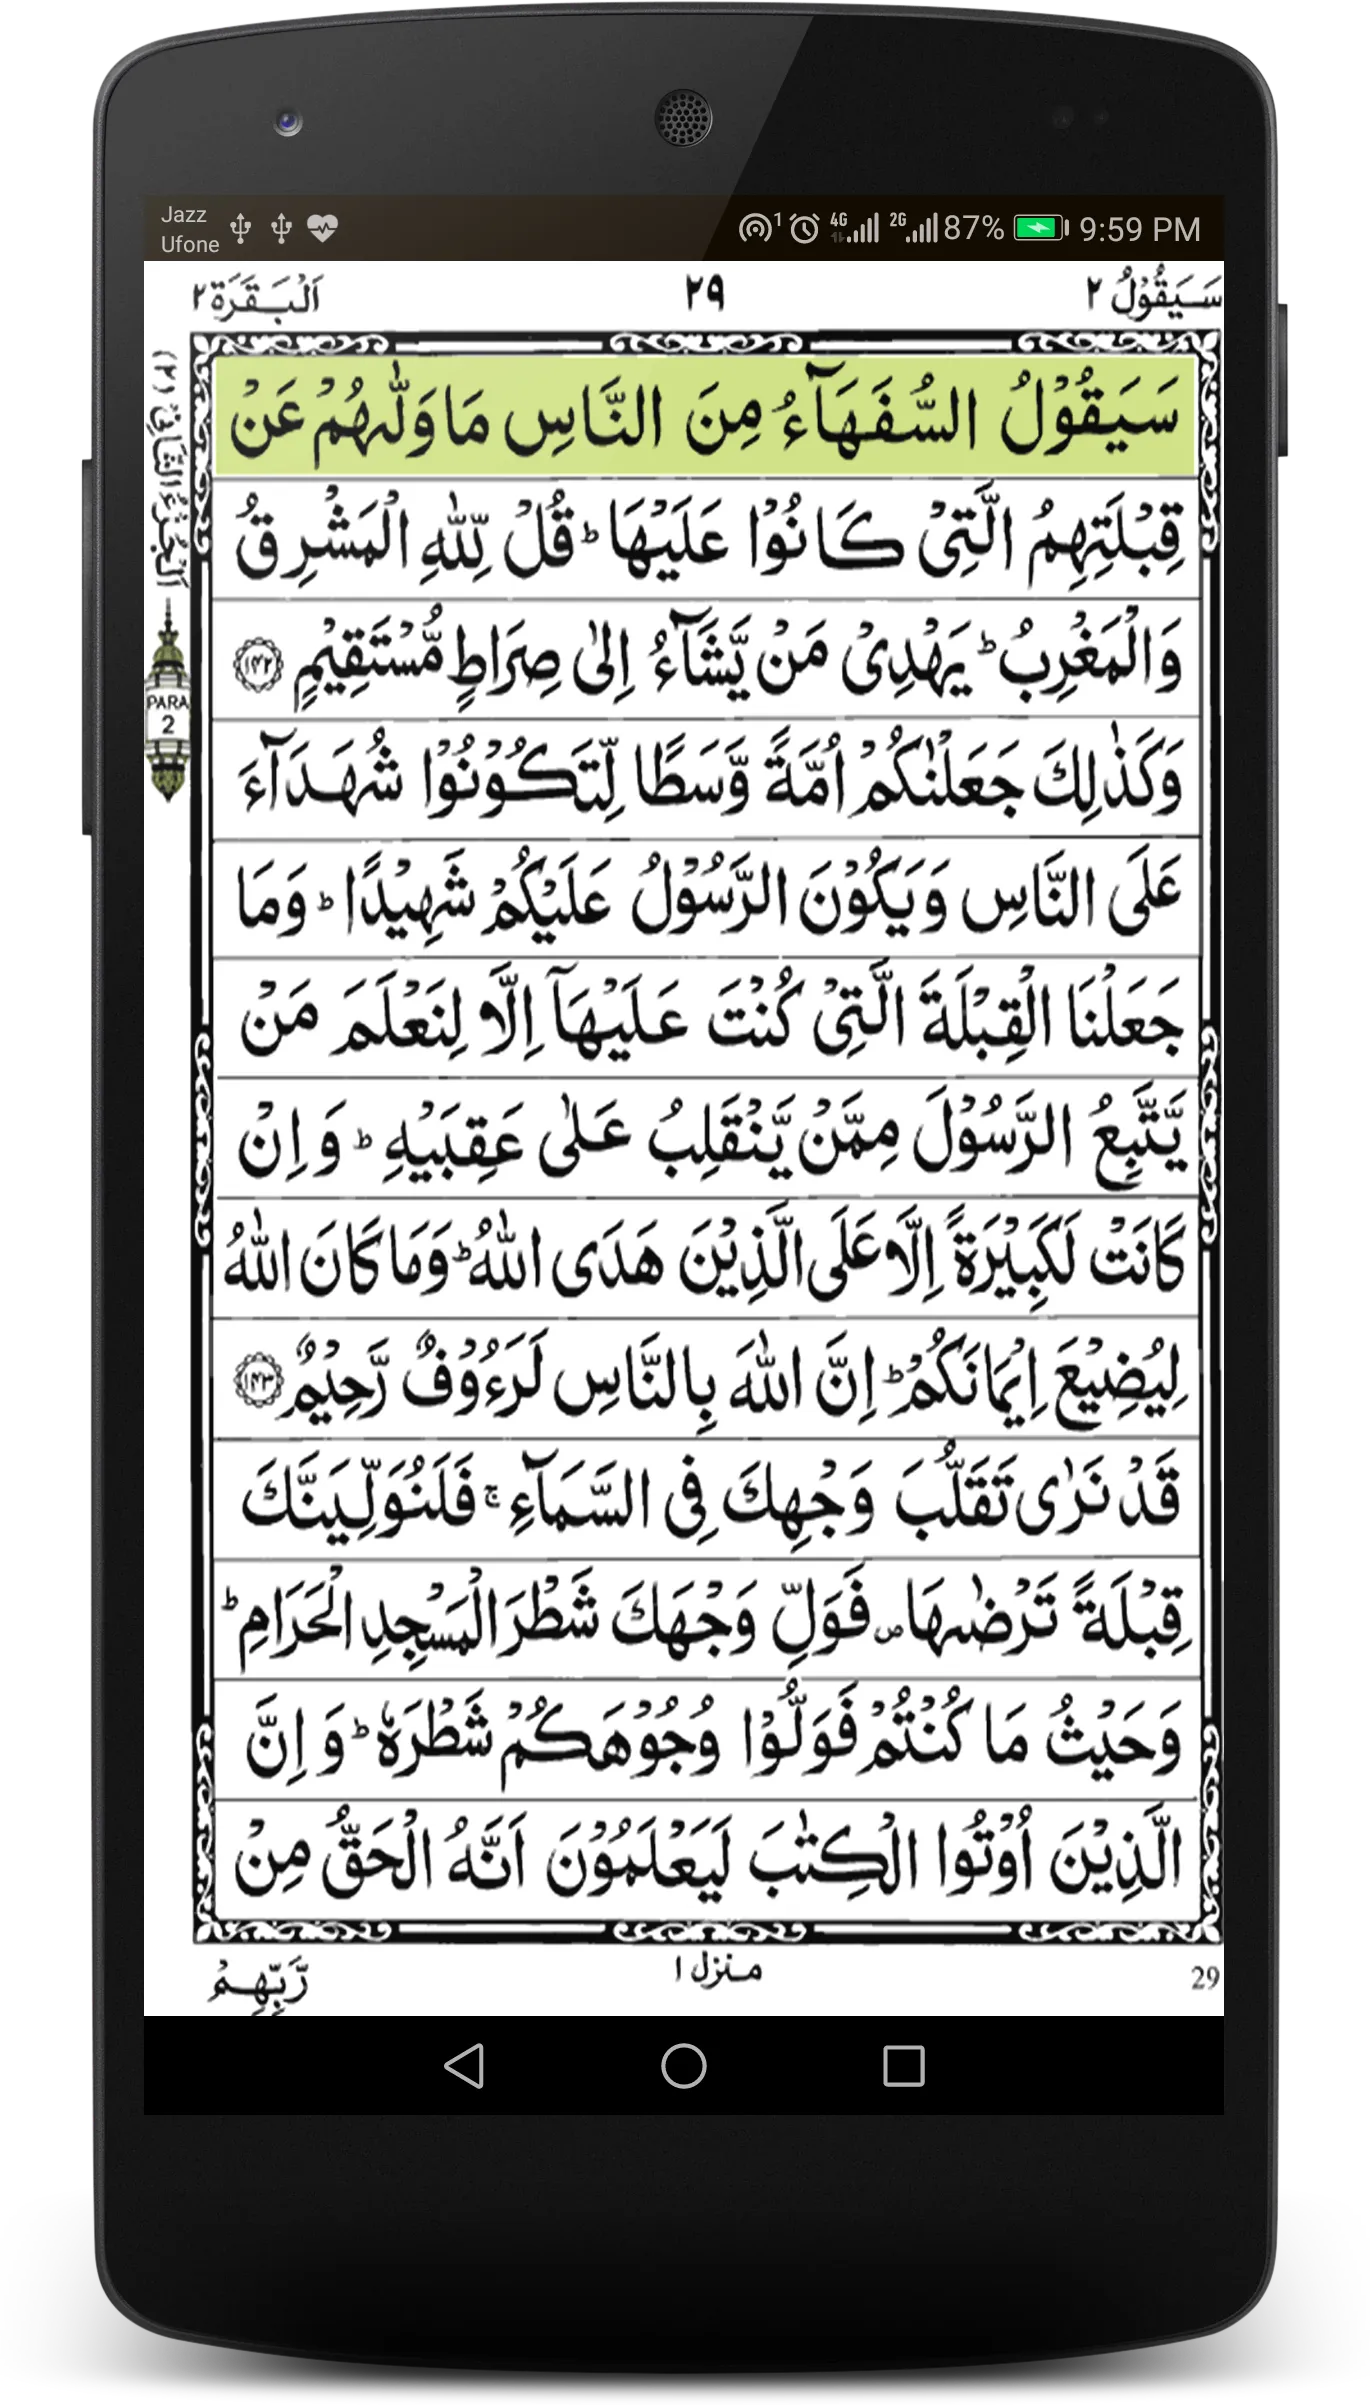 Jazz
Ufone
1 4G 2G 87% 9:59 PM
سَيَقُوْلُ ٢ ٢٩ اَلْبَقَرَة ٢
اَلْجُزْءُ الثَّانِیْ (٢)
PARA
2
سَيَقُوْلُ السُّفَهَآءُ مِنَ النَّاسِ مَا وَلّٰىهُمْ عَنْ
قِبْلَتِهِمُ الَّتِیْ كَانُوْا عَلَيْهَا ؕ قُلْ لِّلّٰهِ الْمَشْرِقُ
وَالْمَغْرِبُ ؕ يَهْدِیْ مَنْ يَّشَآءُ اِلٰى صِرَاطٍ مُّسْتَقِيْمٍ ﴿۱۴۲﴾
وَكَذٰلِكَ جَعَلْنٰكُمْ اُمَّةً وَّسَطًا لِّتَكُوْنُوْا شُهَدَآءَ
عَلَى النَّاسِ وَيَكُوْنَ الرَّسُوْلُ عَلَيْكُمْ شَهِيْدًا ؕ وَمَا
جَعَلْنَا الْقِبْلَةَ الَّتِیْ كُنْتَ عَلَيْهَآ اِلَّا لِنَعْلَمَ مَنْ
يَّتَّبِعُ الرَّسُوْلَ مِمَّنْ يَّنْقَلِبُ عَلٰى عَقِبَيْهِ ؕ وَ اِنْ
كَانَتْ لَكَبِيْرَةً اِلَّا عَلَى الَّذِيْنَ هَدَى اللّٰهُ ؕ وَمَا كَانَ اللّٰهُ
لِيُضِيْعَ اِيْمَانَكُمْ ؕ اِنَّ اللّٰهَ بِالنَّاسِ لَرَءُوْفٌ رَّحِيْمٌ ﴿۱۴۳﴾
قَدْ نَرٰى تَقَلُّبَ وَجْهِكَ فِی السَّمَآءِ ۚ فَلَنُوَلِّيَنَّكَ
قِبْلَةً تَرْضٰىهَا ۪ فَوَلِّ وَجْهَكَ شَطْرَ الْمَسْجِدِ الْحَرَامِ ؕ
وَحَيْثُ مَا كُنْتُمْ فَوَلُّوْا وُجُوْهَكُمْ شَطْرَهٗ ؕ وَ اِنَّ
الَّذِيْنَ اُوْتُوا الْكِتٰبَ لَيَعْلَمُوْنَ اَنَّهُ الْحَقُّ مِنْ
29 منزل ١ رَّبِّهِمْ